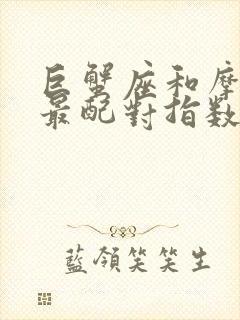 巨蟹座和摩
最配對指数
藍領笑笑生